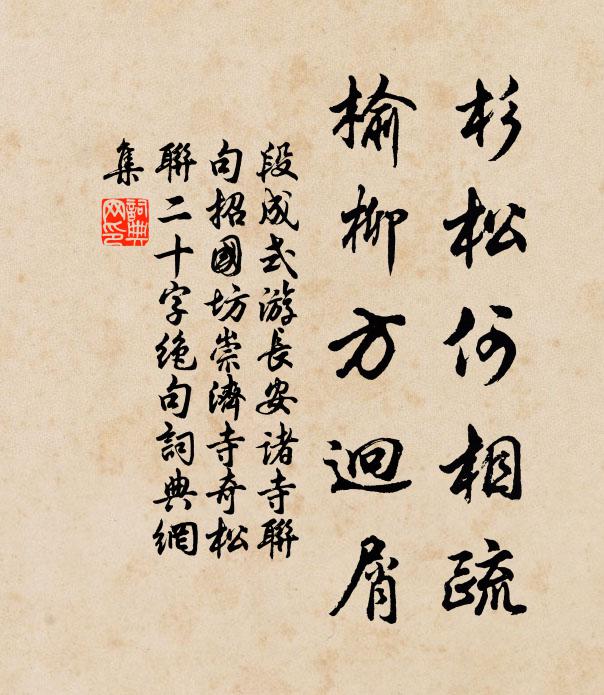 杉松何相疏
榆柳方迥屑
段成式游長安諸寺聯
句招國坊崇濟寺奇松
聯二十字絶句詞典網
集
詞典
网印